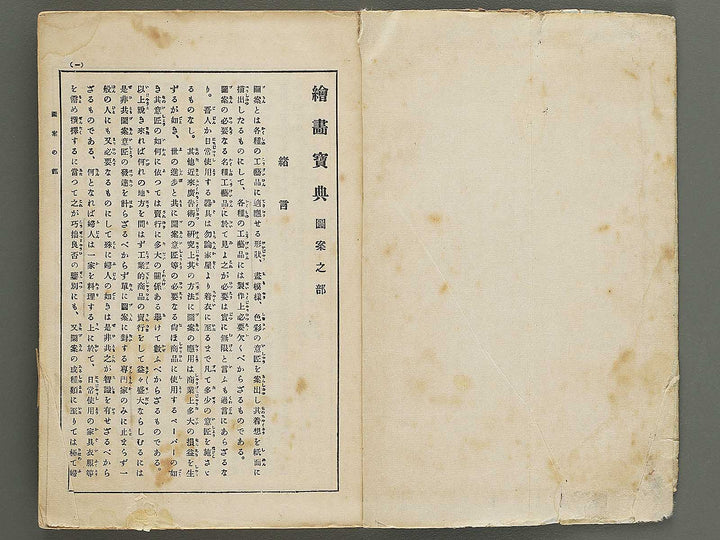 繪畫寶典 圖案之部
緒言
圖案とは各種の工藝品に適應せる形狀、畫模樣、色彩の意匠を案出し其着想を紙面に
描出したるものにして、各種の工藝品には製作上必要欠くべからざるものである。
圖案の必要なる各種工藝品に於て見よ之が必要は實に無限と言ふも過言にあらざるな
り。吾人が日常使用する器具は勿論家屋より着衣に至るまで凡て多少の意匠を施さざ
るものなし。其他近來廣告術の研究上其の方法に圖案の應用は商業上多大の損益を生
ずるが如き、世の進步と共に圖案意匠等の必要なる尙ほ商品に使用するペーパーの如
き其意匠の如何に依つては賣行に多大の關係ある擧げて數ふべからざるものである。
以上說き來れば何れの地方を問はず工業的商品の賣行をして益々盛大ならしむるには
是非共圖案意匠の發達を計らざるべからず單に圖案に對する專門家のみに止まらず一
般の人にも又必要なるものにして殊に婦人の如きは是非共之が智識を有せざるべから
ざるものである、何となれば婦人は一家を料理する上に於て、日常使用の家具衣服等
を需め撰擇するに當つて之が巧拙良否の鑒別にも、又圖案の成種類に至りては極て婦
圖案の部
(一)